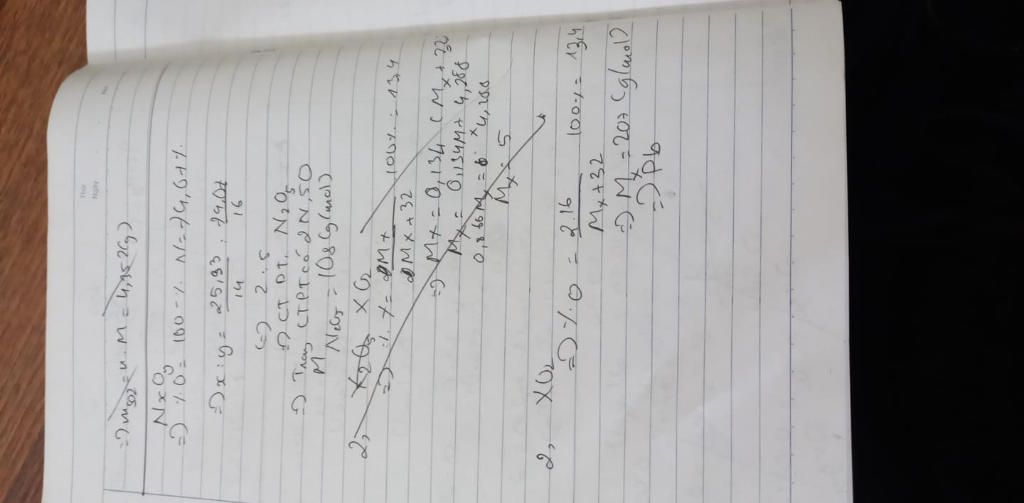 => mSO2 = n . M = 4,352(g)
NxOy
=> % O = 100 - % N = 74,07%
=> x : y = 25,93/14 : 74,07/16
(=) 2 : 5
=> CT ĐT : N2O5
=> Trong CTPT có 2N, 5O
M N2O5 = 108 (g/mol)
2, X2O3 XO2
=> % X = MX / MX + 32 100% = 13,4
=> MX = 0,134 (MX + 32
MX = 0,134M + 4,288
0,866MX = 4,288
MX = 5
2, XO2
=> % O = 2.16 / MX + 32 100% = 13,4
=> MX = 207 (g/mol)
=> Pb